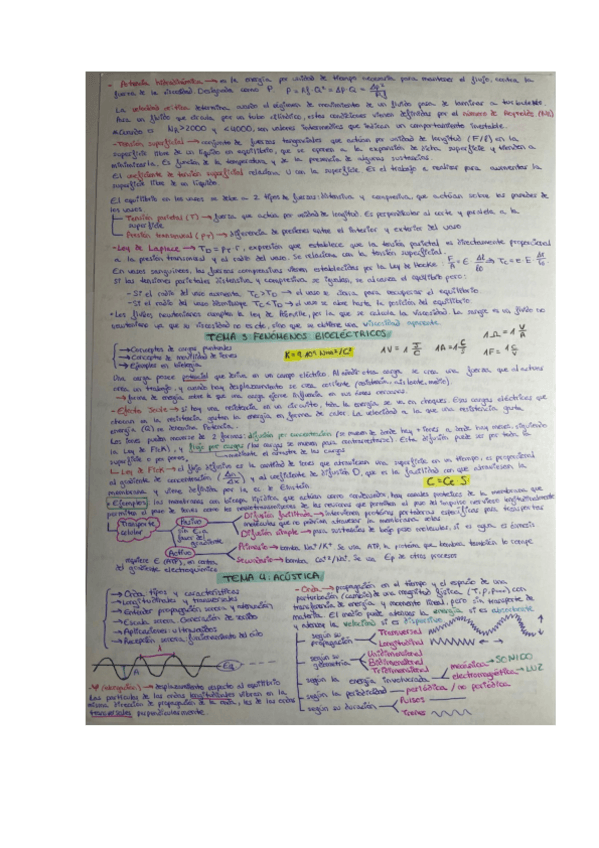 - Potencia hidrodinámica → es la energía por unidad de tiempo necesaria para mantener el flujo, contra la
fuerza de la viscosidad. Designada como P.
La velocidad crítica determina cuándo el régimen de movimiento de un fluido pasa de laminar a turbulento.
Para un fluido que circula por un tubo cilíndrico, estas condiciones vienen definidas por el número de Reynolds (NR)
*Cuando NR>2000 y <4000, son valores intermedios que indican un comportamiento inestable.
- Tensión superficial → conjunto de fuerzas tangenciales que actúan por unidad de longitud (F/l) en la
superficie libre de un líquido en equilibrio, que se oponen a la expansión de dicha superficie y tienden a
minimizarla. Es función de la temperatura y de la presencia de algunas sustancias.
El coeficiente de tensión superficial relaciona U con la superficie. Es el trabajo a realizar para aumentar la
superficie libre de un líquido.
El equilibrio en los vasos se debe a 2 tipos de fuerzas: distensiva y compresiva, que actúan sobre las paredes de
los vasos.
Tensión parietal (T) → fuerza que actúa por unidad de longitud. Es perpendicular al corte y paralela a la
superficie
Presión transmural (Pr) → diferencia de presiones entre el interior y exterior del vaso
- Ley de Laplace → TD = Pr · r, expresión que establece que la tensión parietal es directamente proporcional
a la presión transmural y al radio del vaso. Se relaciona con la tensión superficial.
En vasos sanguíneos, las fuerzas compresivas vienen establecidas por la Ley de Hooke:
Si las tensiones parietales distensiva y compresiva se igualan, se alcanza el equilibrio pero:
- Si el radio del vaso aumenta, TC > TD → el vaso se cierra para recuperar el equilibrio.
- Si el radio del vaso disminuye, TC < TD → el vaso se abre hasta la posición del equilibrio.
• Los fluidos newtonianos cumplen la ley de Poiseuille, por la que se calcula la viscosidad. La sangre es un fluido no
newtoniano ya que su viscosidad no es cte, sino que se obtiene una viscosidad aparente.
TEMA 3: FENÓMENOS BIOELÉCTRICOS
→ Conceptos de cargas puntuales
→ Conceptos de movilidad de iones
→ Ejemplos en biología
K = 9·10⁹ Nm²/C²
Una carga posee potencial que deriva en un campo eléctrico. Al añadir otra carga se crea una fuerza que al actuar
→ forma de energía
- Efecto Joule → si hay una resistencia en un circuito, toda la energía se va en choques. Esas cargas eléctricas que
chocan en la resistencia gastan la energía en forma de calor. La velocidad a la que una resistencia gasta
energía (Q) se denomina Potencia.
Los iones pueden moverse de 2 formas: difusión por concentración (se mueven de donde hay + iones a donde hay menos, siguiendo
la Ley de Fick), y flujo por cargas (las cargas se mueven para contrarrestarse). Esta difusión puede ser por toda la
superficie o por poros.
- Ley de Fick → el flujo difusivo es la cantidad de iones que atraviesan una superficie en un tiempo, es proporcional
al gradiente de concentración y al coeficiente de difusión D, que es la facilidad con que atraviesan la
membrana y viene definido por la ec de Einstein.
C = Ce · S
Ejemplos: las membranas con bicapa lipídica que actúan como condensador, hay canales proteicos de la membrana que
Transporte
celular
Pasivo
sin E, a
favor del
gradiente
Difusión facilitada → intervienen proteínas portadoras específicas para transportar
moléculas que no podrían atravesar la membrana solas
Difusión simple → pasan sustancias de bajo peso molecular, si es agua es ósmosis
Activo
requiere E (ATP), en contra
del gradiente electroquímico
Primario → bomba Na⁺/K⁺. Se usa ATP, la proteína que bombea también lo rompe
Secundario → bomba Ca²⁺/Na⁺. Se usa Ep de otros procesos
TEMA 4: ACÚSTICA
→ Onda, tipos y características
→ Longitudinales y transversales
→ Entender propagación sonora y atenuación
→ Escala sonora. Generación de sonidos
→ Aplicaciones: ultrasonidos
→ Recepción sonora, funcionamiento del oído
- Onda → propagación en el tiempo y el espacio de una
perturbación (cambio) de una magnitud física
transferencia de energía y momento lineal, pero sin transporte de
materia. El medio puede atenuar la energía si es absorbente
y alterar la velocidad si es dispersivo
según su
propagación
Transversal
Longitudinal
según su
geometría
Unidimensional
Bidimensional
Tridimensional
según la energía involucrada
mecánica → SONIDO
electromagnética → LUZ
según la periodicidad
periódica / no periódica
según su duración
Pulsos
Trenes
λ
A
Eq
- Ψ (elongación) → desplazamiento respecto al equilibrio
Las partículas de las ondas longitudinales vibran en la
misma dirección de propagación de la onda, las de las ondas
transversales perpendicularmente.